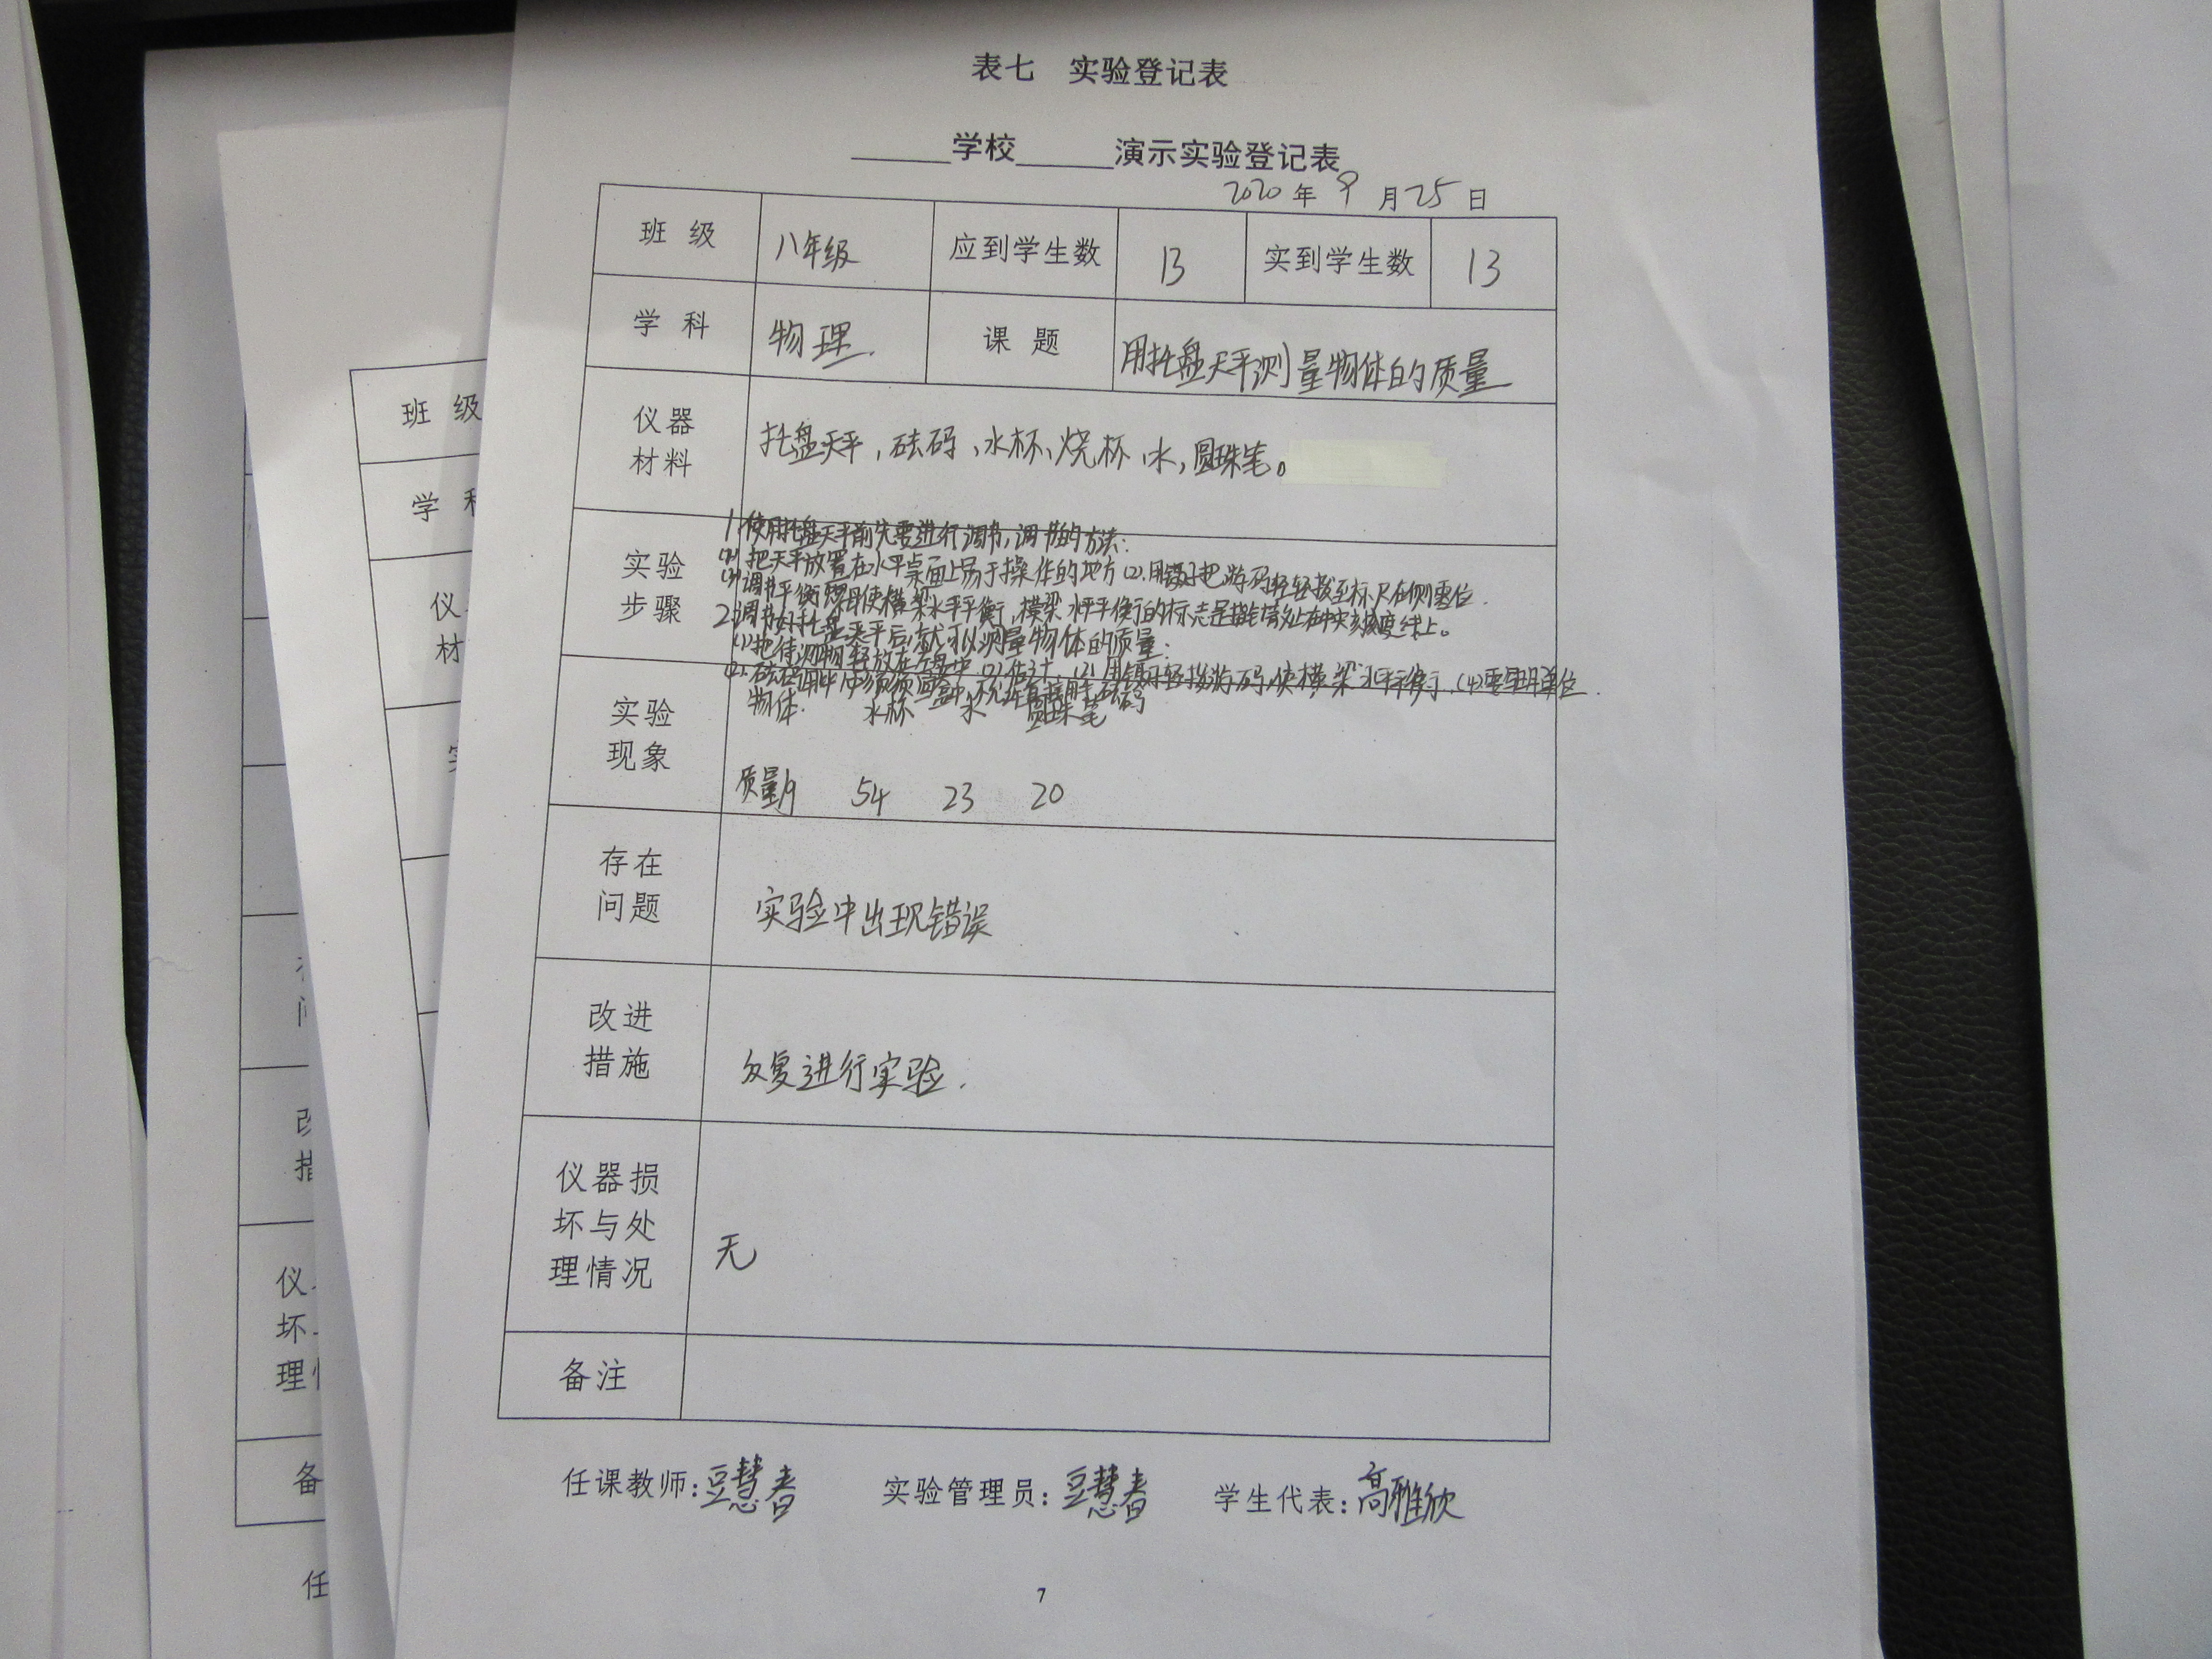 表七 实验登记表
______学校______演示实验登记表
2020年9月25日
班 级 八年级 应到学生数 13 实到学生数 13
学 科 物理. 课 题 用托盘天平测量物体的质量
仪器
材料
托盘天平,砝码、水杯、烧杯、水,圆珠笔。
实验
步骤
1.使用托盘天平前先要进行调节,调节的方法:
把天平放置在水平桌面上易于操作的地方(2).用镊子把游码轻轻拨至标尺左侧零位.
(3)调节平衡螺母使横梁水平平衡,横梁水平平衡的标志是指针旁处在中央刻度线上。
2.调节好托盘天平后,就可以测量物体的质量:
(1)把待测物轻放在左盘中 (2)估计. (3)用镊子轻拨游码,使横梁水平平衡. (4)要写明单位.
实验
现象
物体. 水杯 水 圆珠笔
质量/g 54 23 20
存在
问题
实验中出现错误
改进
措施
反复进行实验.
仪器损
坏与处
理情况
无
备注
任课教师:豆慧春 实验管理员:豆慧春 学生代表:高雅欣
7
班 级
学 科
仪
材
备
任
仪
坏
理